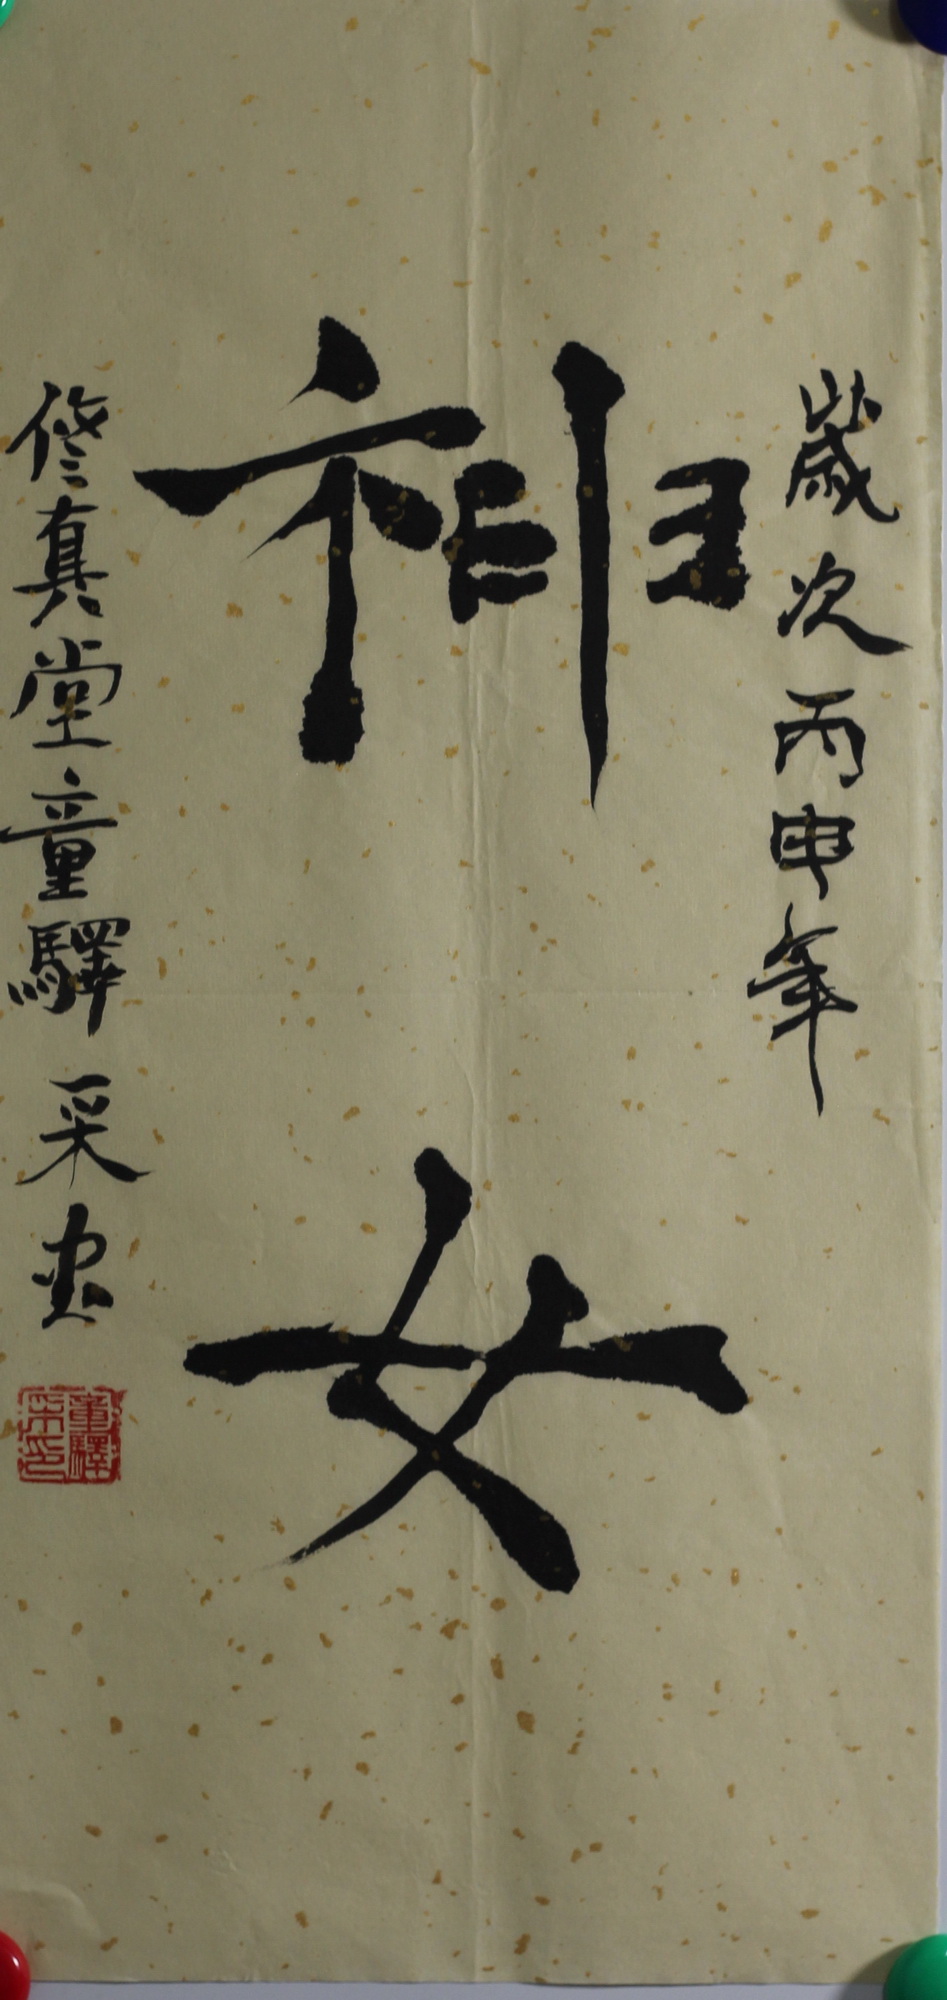 歲次丙申年
神女
修真堂童驛采書
童驛采印